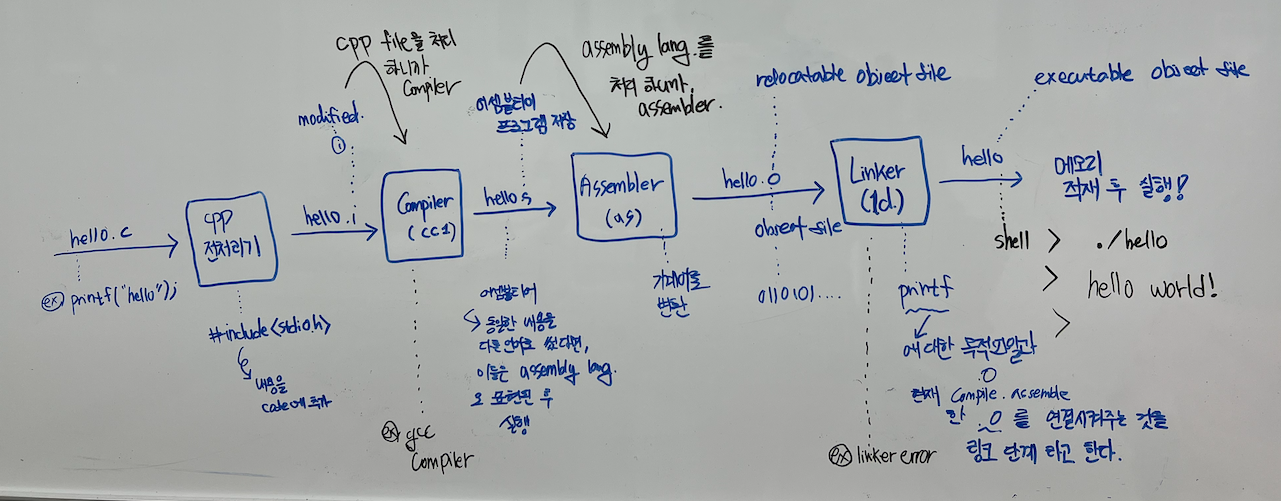 cpp file을 처리
하니까
Compiler
assembly lang.를
처리 하니까,
assembler.
relocatable object file
executable object file
modified.
i
어셈블리어
프로그램 저장
hello.c
ex) printf("hello");
cpp
전처리기
#include<stdio.h>
내용을
code에 추가
hello.i
Compiler
(cc1)
ex) gcc
Compiler
hello.s
어셈블리어
동일한 내용을
다른 언어로 썼다면,
이들은 assembly lang.
로 표현된 후
실행
Assembler
(as)
기계어로
변환
hello.o
object file
0110101....
Linker
(ld.)
ex) linker error
printf
에 대한 목적파일과
.o
현재 compile.assemble
한 .o 를 연결시켜주는 것을
링크 단계 라고 한다.
hello
메모리
적재 후 실행!
shell > ./hello
> hello world!
>